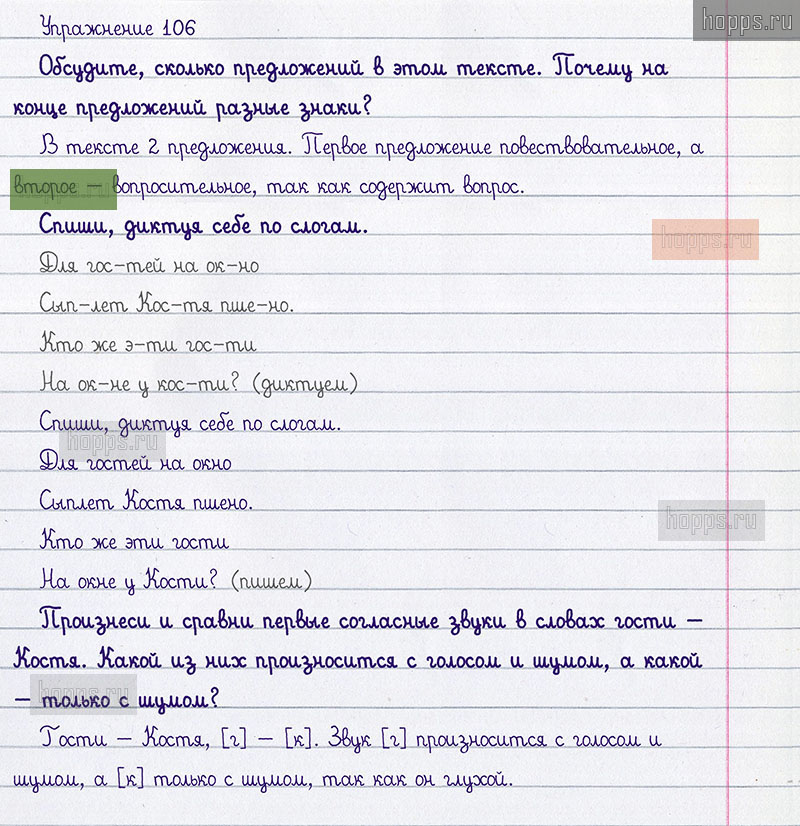 Упражнение 106
hopps.ru
Обсудите, сколько предложений в этом тексте. Почему на
конце предложений разные знаки?
В тексте 2 предложения. Первое предложение повествовательное, а
второе – вопросительное, так как содержит вопрос.
hopps.ru
Спиши, диктуя себе по слогам.
hopps.ru
Для гос-тей на ок-но
Сып-лет Кос-тя пше-но.
Кто же э-ти гос-ти
На ок-не у кос-ти? (диктуем)
Спиши, диктуя себе по слогам.
hopps.ru
Для гостей на окно
Сыплет Костя пшено.
hopps.ru
Кто же эти гости
На окне у Кости? (пишем)
Произнеси и сравни первые согласные звуки в словах гости –
Костя. Какой из них произносится с голосом и шумом, а какой
– только с шумом?
hopps.ru
Гости – Костя, [г] – [к]. Звук [г] произносится с голосом и
шумом, а [к] только с шумом, так как он глухой.